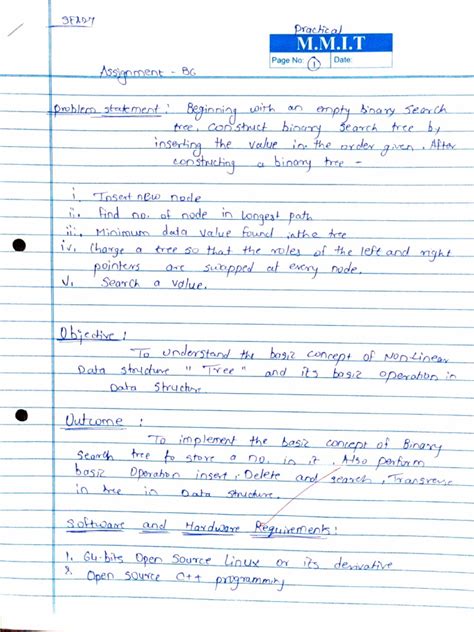 SEAD4
Practical
M.M.I.T
Page No: 1 Date:
Assignment - B6
problem statement : Beginning with an empty Binary Search
tree, construct binary search tree by
inserting the value in the order given. After
constructing a binary tree -
i. Insert new node
ii. find no. of node in longest path
iii. Minimum data value found inthe tree
iv. Change a tree so that the roles of the left and right
pointers are swapped at every node.
v. Search a value.
Objective :
To understand the basic concept of Non-Linear
Data structure " Tree " and its basic operation in
Data Structure.
Outcome :
To implement the basic concept of Binary
Search tree to store a no. in it. Also perform
basic Operation insert, Delete and search, Transverse
in tree in Data structure.
Software and Hardware Requirements :
1. 64-bits Open Source Linux or its derivative
2. Open Source C++ programming